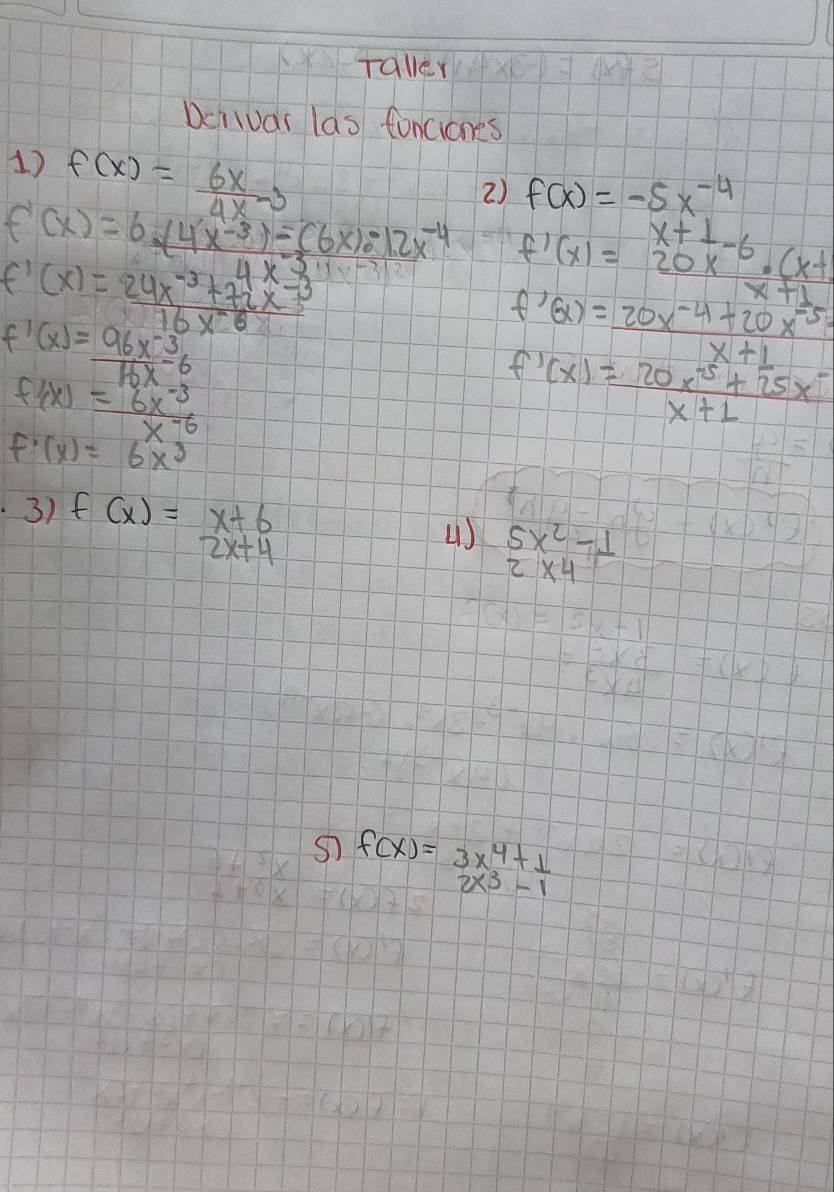 Taller
Derivar las funciones
1) f(x) = 6x
4x-3
f'(x) = 6.(4x-3) = (6x).-12x-4
4x-3
f'(x) = 24x-3 + 72x-3
16x-6
f'(x) = 96x-3
16x-6
f'(x) = 6x-3
x-6
f'(x) = 6x3
2) f(x) = -5x-4
x+1
f'(x) = 20x-6.(x+
x+1
f'(x) = 20x-4 + 20x-5
x+1
f'(x) = 20x-5 + 25x-
x+1
3) f(x) = x+6
2x+4
4) 5x2-1
2x4
5) f(x) = 3x4+1
2x3-1